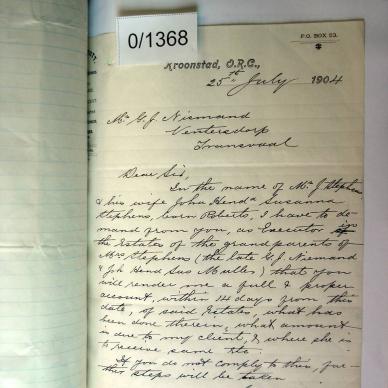 0/1368
P.O. BOX 53.
Kroonstad, O.R.C.,
25th July 1904
Mr G. J. Niemand
Ventersdorp
Transvaal
Dear Sir,
In the name of Mr J Stephens
& his wife Joha Hendª Susanna
Stephens, born Roberts, I have to de-
mand from you, as Executor in
the Estates of the grand parents of
Mrs Stephens (the late G. J. Niemand
& Joh Hend Sus Muller) that you
will render me a full & proper
account, within 14 days from this
date, of said Estates, what has
been done therein, what amount
is due to my client, & where she is
to receive same etc
If you do not comply to this, fur-
ther steps will be taken